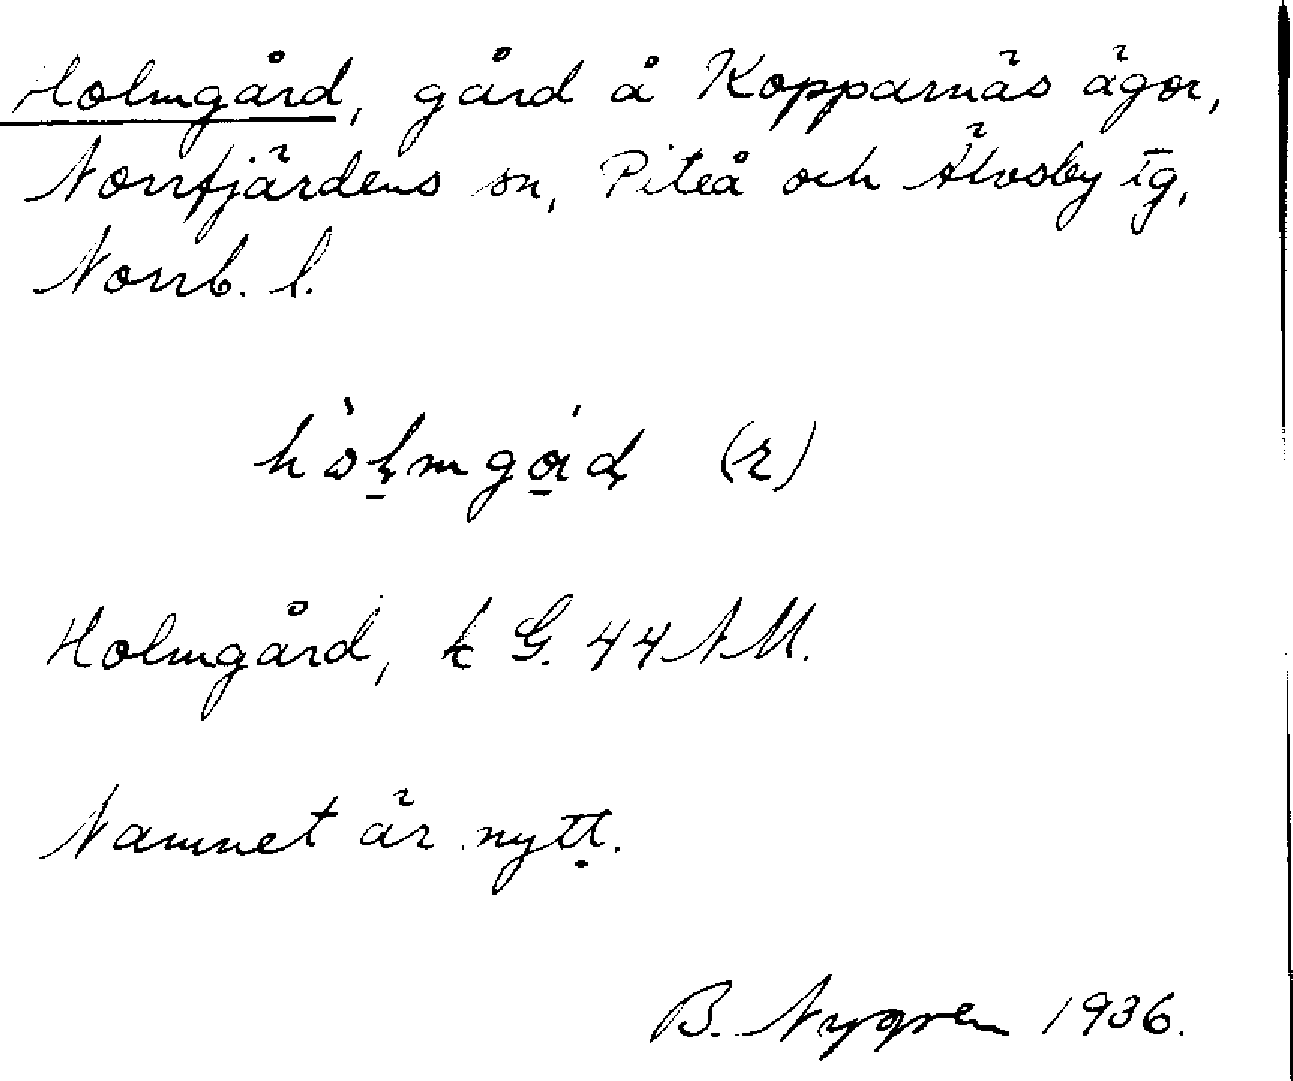 Holmgård, gård å Kopparnäs ägor,
Norrfjärdens sn, Piteå och Älvsby tg,
Norrb. l.
(r)
Holmgård, k G. 44 N M.
Namnet är nytt.
B. Nygren 1936.